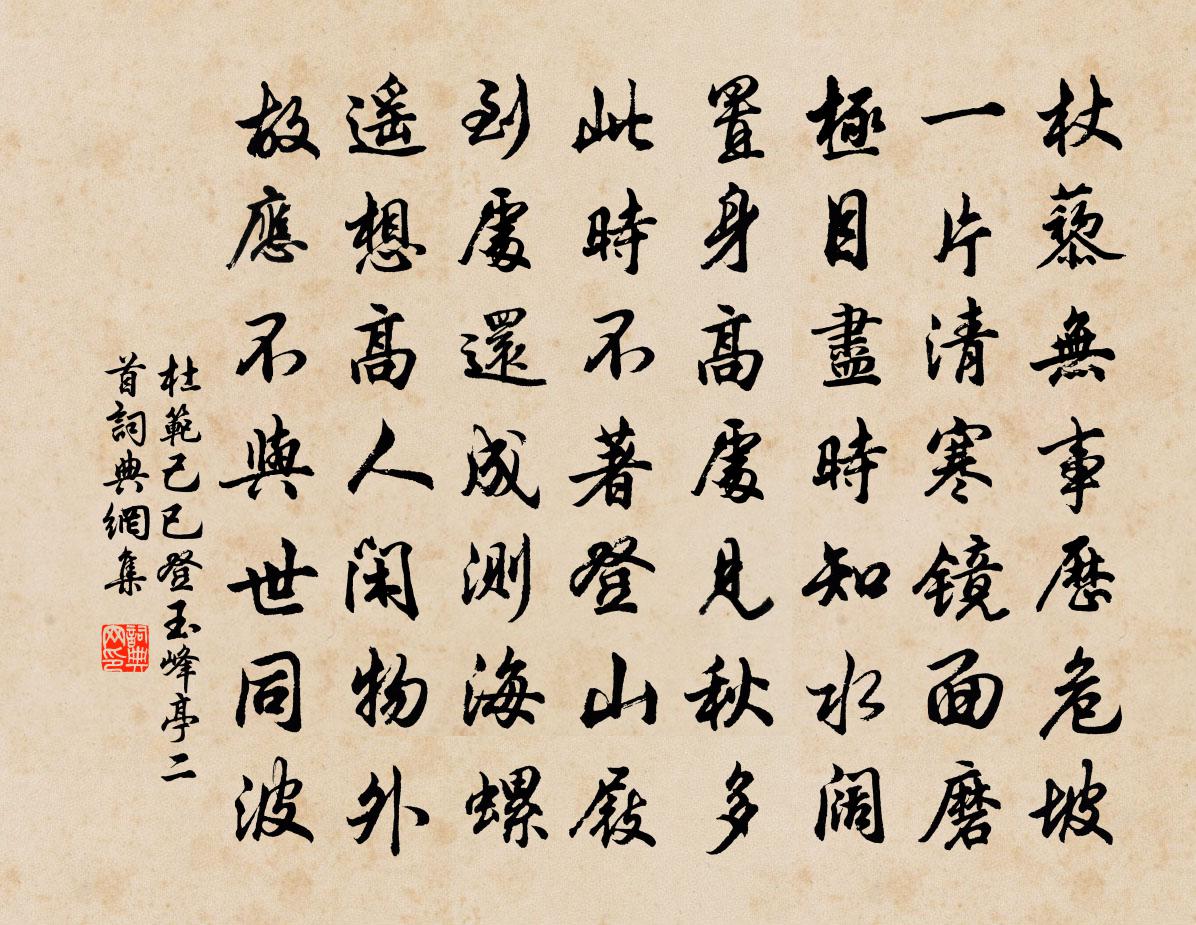 杖藜無事歷危坡
一片清寒镜面磨
極目盡時知水闊
置身高處見秋多
此時不著登山屐
到處還成測海螺
遥想高人閑物外
故應不與世同波
杜範己巳登玉峰亭二
首詞典網集
詞典網印